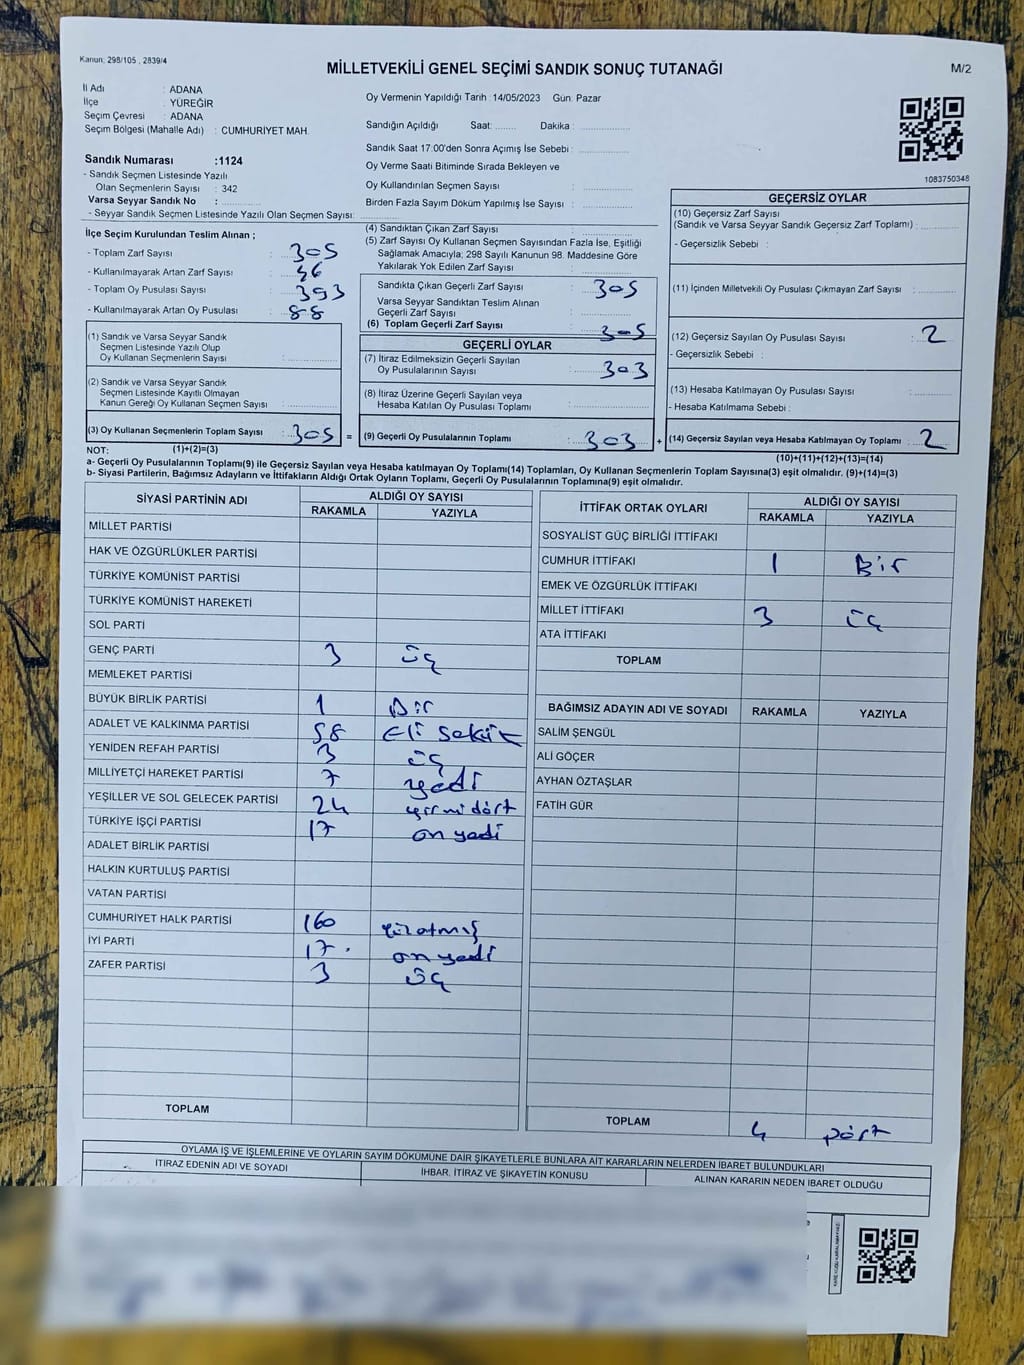 Kanun: 298/105 , 2839/4
MİLLETVEKİLİ GENEL SEÇİMİ SANDIK SONUÇ TUTANAĞI
M/2
İl Adı : ADANA
İlçe : YÜREĞİR
Seçim Çevresi : ADANA
Seçim Bölgesi (Mahalle Adı) : CUMHURİYET MAH.
Oy Vermenin Yapıldığı Tarih : 14/05/2023 Gün: Pazar
Sandığın Açıldığı Saat: ........ Dakika : ....................
Sandık Saat 17:00'den Sonra Açımış İse Sebebi : ....................
Oy Verme Saati Bitiminde Sırada Bekleyen ve
Oy Kullandırılan Seçmen Sayısı : ....................
Birden Fazla Sayım Döküm Yapılmış İse Sayısı : ....................
1083750348
Sandık Numarası :1124
- Sandık Seçmen Listesinde Yazılı
Olan Seçmenlerin Sayısı : 342
Varsa Seyyar Sandık No : ....................
- Seyyar Sandık Seçmen Listesinde Yazılı Olan Seçmen Sayısı: ....................
İlçe Seçim Kurulundan Teslim Alınan ;
- Toplam Zarf Sayısı : 305
- Kullanılmayarak Artan Zarf Sayısı :
- Toplam Oy Pusulası Sayısı : 393
- Kullanılmayarak Artan Oy Pusulası : 88
(1) Sandık ve Varsa Seyyar Sandık
Seçmen Listesinde Yazılı Olup
Oy Kullanan Seçmenlerin Sayısı : ....................
(2) Sandık ve Varsa Seyyar Sandık
Seçmen Listesinde Kayıtlı Olmayan
Kanun Gereği Oy Kullanan Seçmen Sayısı : ....................
(3) Oy Kullanan Seçmenlerin Toplam Sayısı : 305 =
(1)+(2)=(3)
(4) Sandıktan Çıkan Zarf Sayısı : ....................
(5) Zarf Sayısı Oy Kullanan Seçmen Sayısından Fazla İse, Eşitliği
Sağlamak Amacıyla; 298 Sayılı Kanunun 98. Maddesine Göre
Yakılarak Yok Edilen Zarf Sayısı : ....................
Sandıkta Çıkan Geçerli Zarf Sayısı : 305
Varsa Seyyar Sandıktan Teslim Alınan
Geçerli Zarf Sayısı : ....................
(6) Toplam Geçerli Zarf Sayısı : 305
GEÇERLİ OYLAR
(7) İtiraz Edilmeksizin Geçerli Sayılan
Oy Pusulalarının Sayısı : 303
(8) İtiraz Üzerine Geçerli Sayılan veya
Hesaba Katılan Oy Pusulası Toplamı : ....................
(9) Geçerli Oy Pusulalarının Toplamı : 303 +
GEÇERSİZ OYLAR
(10) Geçersiz Zarf Sayısı
(Sandık ve Varsa Seyyar Sandık Geçersiz Zarf Toplamı) : ....................
- Geçersizlik Sebebi :
(11) İçinden Milletvekili Oy Pusulası Çıkmayan Zarf Sayısı : ....................
(12) Geçersiz Sayılan Oy Pusulası Sayısı : 2
- Geçersizlik Sebebi :
(13) Hesaba Katılmayan Oy Pusulası Sayısı : ....................
- Hesaba Katılmama Sebebi :
(14) Geçersiz Sayılan veya Hesaba Katılmayan Oy Toplamı : 2
(10)+(11)+(12)+(13)=(14)
NOT:
a- Geçerli Oy Pusulalarının Toplamı(9) ile Geçersiz Sayılan veya Hesaba katılmayan Oy Toplamı(14) Toplamları, Oy Kullanan Seçmenlerin Toplam Sayısına(3) eşit olmalıdır. (9)+(14)=(3)
b- Siyasi Partilerin, Bağımsız Adayların ve İttifakların Aldığı Ortak Oyların Toplamı, Geçerli Oy Pusulalarının Toplamına(9) eşit olmalıdır.
SİYASİ PARTİNİN ADI
ALDIĞI OY SAYISI
RAKAMLA YAZIYLA
MİLLET PARTİSİ
HAK VE ÖZGÜRLÜKLER PARTİSİ
TÜRKİYE KOMÜNİST PARTİSİ
TÜRKİYE KOMÜNİST HAREKETİ
SOL PARTİ
GENÇ PARTİ 3 üç
MEMLEKET PARTİSİ
BÜYÜK BİRLİK PARTİSİ 1 Bir
ADALET VE KALKINMA PARTİSİ 58 Eli Sekiz
YENİDEN REFAH PARTİSİ 3 üç
MİLLİYETÇİ HAREKET PARTİSİ 7 yedi
YEŞİLLER VE SOL GELECEK PARTİSİ 24 yirmi dört
TÜRKİYE İŞÇİ PARTİSİ 17 on yedi
ADALET BİRLİK PARTİSİ
HALKIN KURTULUŞ PARTİSİ
VATAN PARTİSİ
CUMHURİYET HALK PARTİSİ 160 yüzatmış
İYİ PARTİ 17. on yedi
ZAFER PARTİSİ 3 üç
TOPLAM
İTTİFAK ORTAK OYLARI
ALDIĞI OY SAYISI
RAKAMLA YAZIYLA
SOSYALİST GÜÇ BİRLİĞİ İTTİFAKI
CUMHUR İTTİFAKI 1 Bir
EMEK VE ÖZGÜRLÜK İTTİFAKI
MİLLET İTTİFAKI 3 üç
ATA İTTİFAKI
TOPLAM
BAĞIMSIZ ADAYIN ADI VE SOYADI RAKAMLA YAZIYLA
SALİM ŞENGÜL
ALİ GÖÇER
AYHAN ÖZTAŞLAR
FATİH GÜR
TOPLAM 4 Dört
OYLAMA İŞ VE İŞLEMLERİNE VE OYLARIN SAYIM DÖKÜMÜNE DAİR ŞİKAYETLERLE BUNLARA AİT KARARLARIN NELERDEN İBARET BULUNDUKLARI
İTİRAZ EDENİN ADI VE SOYADI İHBAR, İTİRAZ VE ŞİKAYETİN KONUSU ALINAN KARARIN NEDEN İBARET OLDUĞU